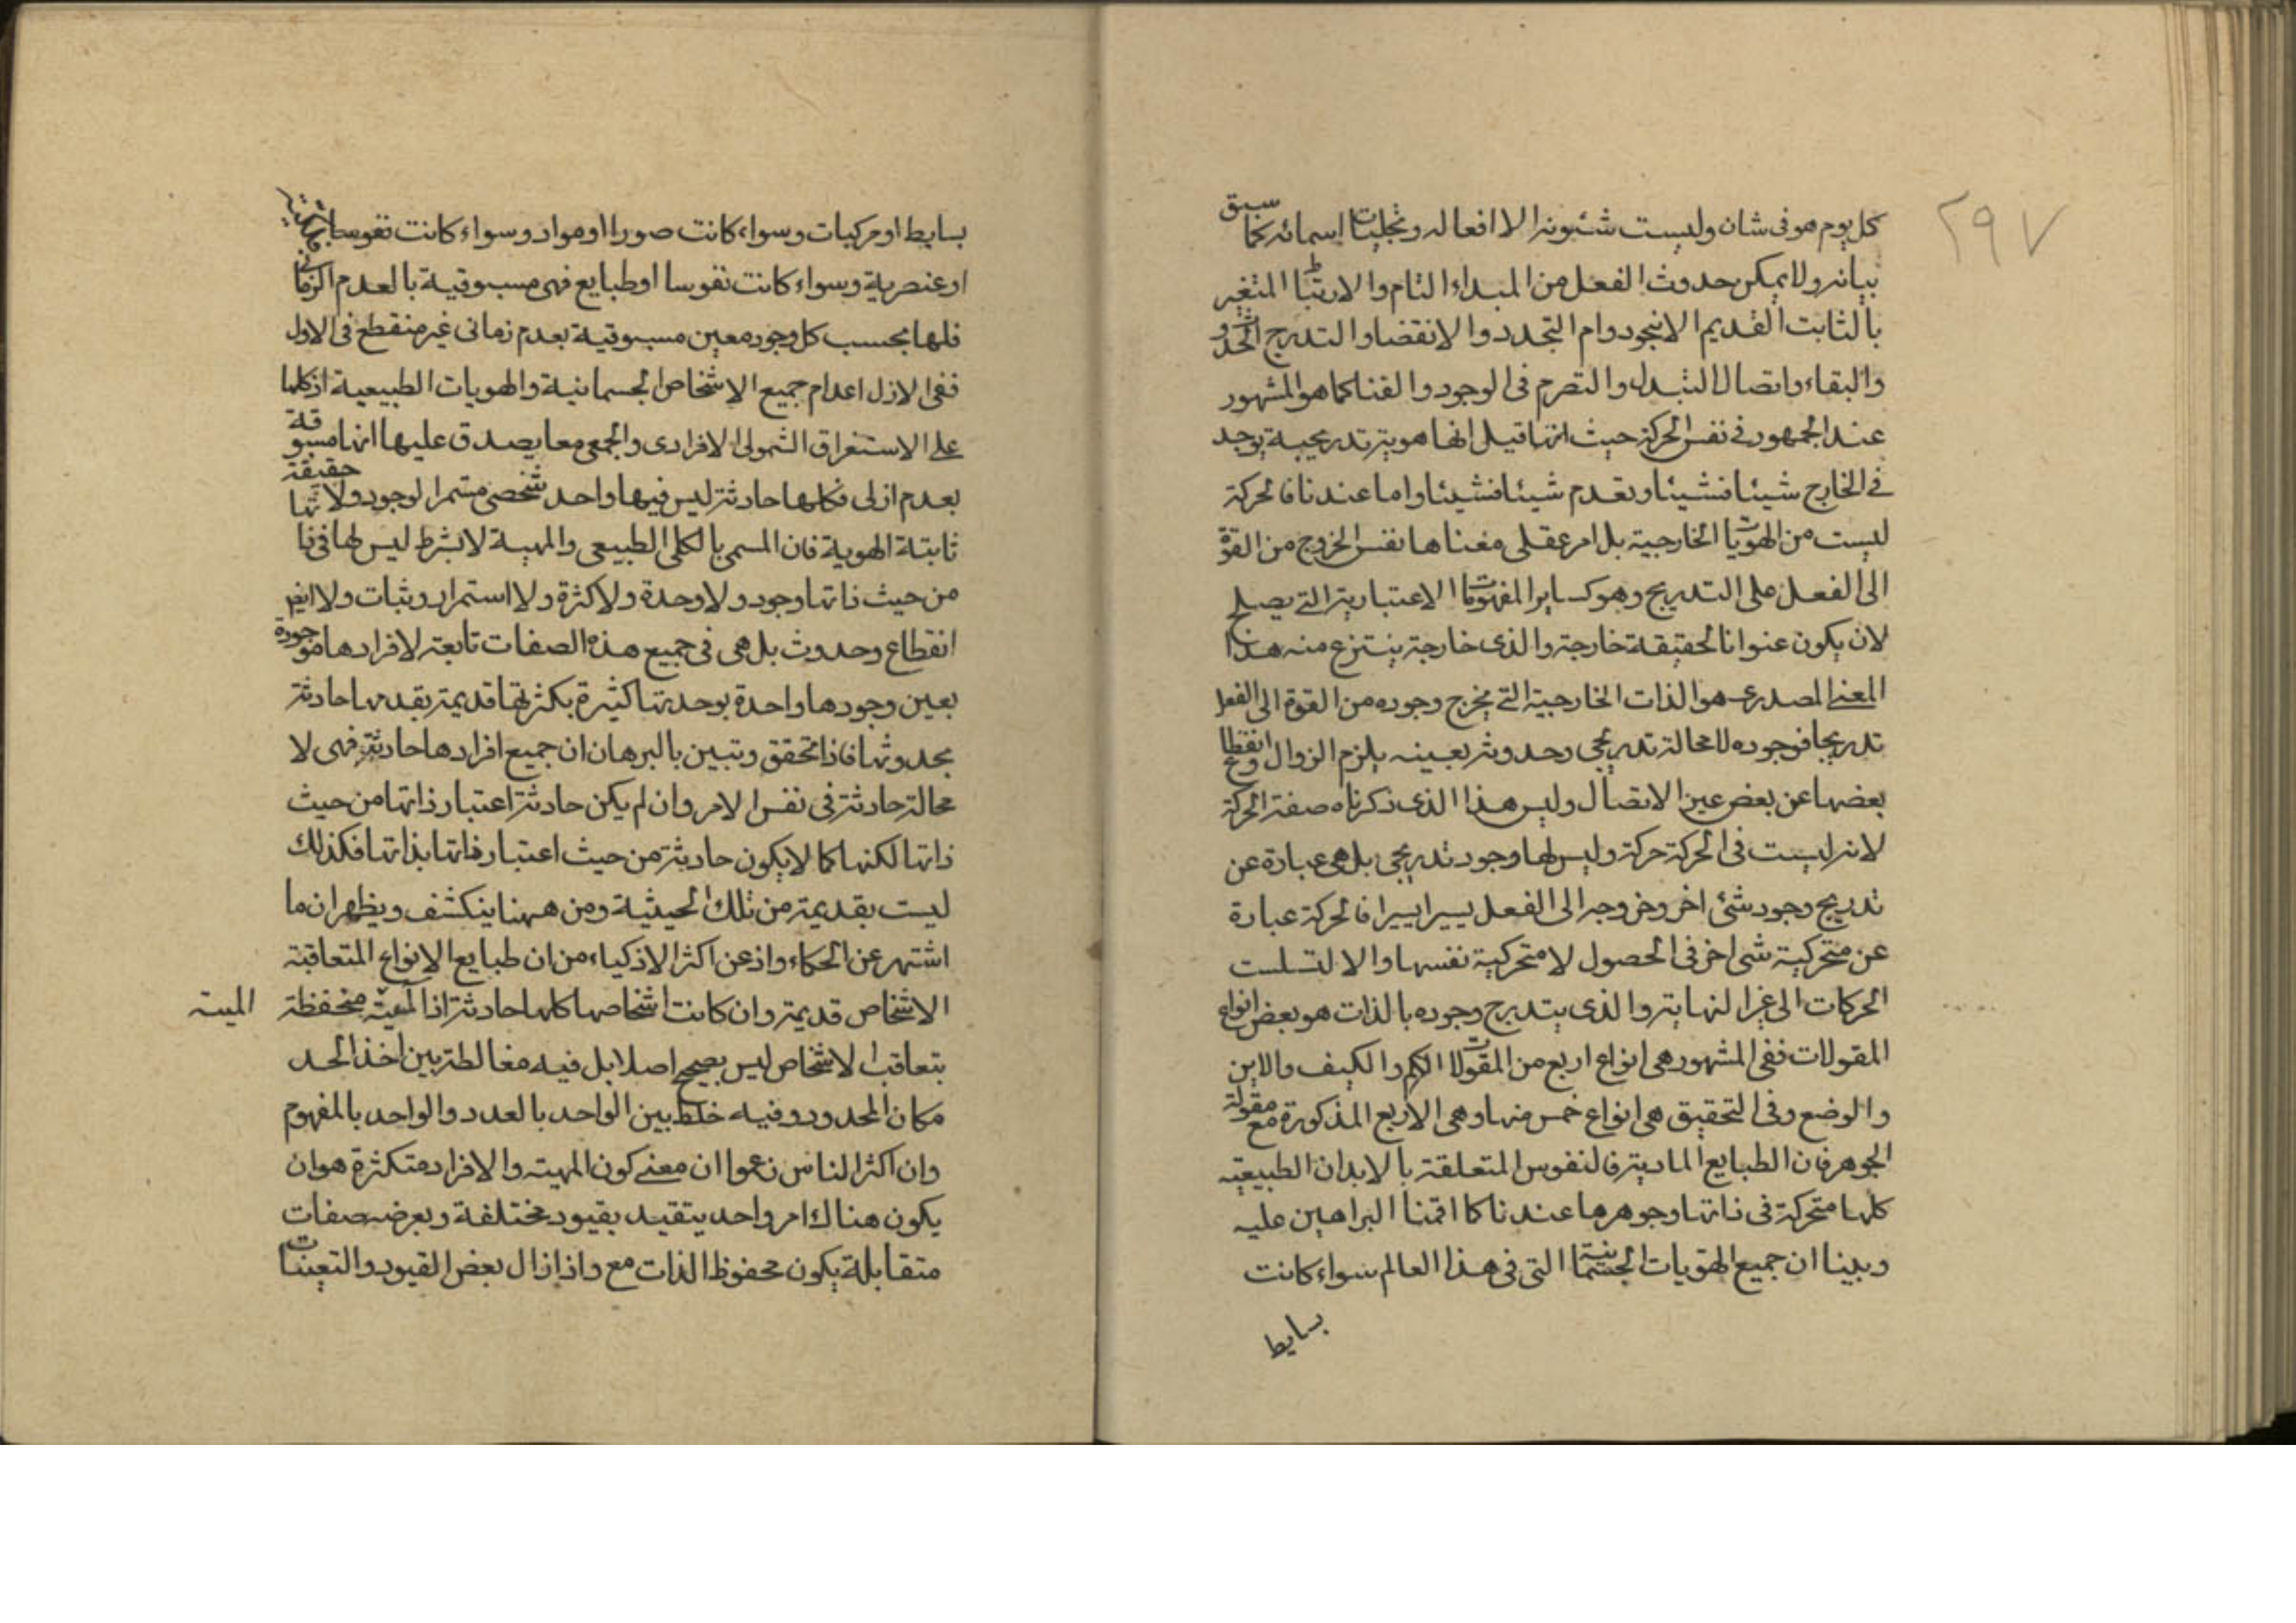 ٢٩٧
كل يوم هو فى شان وليست شئونه الا افعاله وتجليات اسمائه كما سبق
بيانه ولا يمكن حدوث الفعل من المبداء التام والارتباط المتغير
بالثابت القديم الا بنحو دوام التجدد والانقضا والتدرج الحدوث
والبقاء واتصال التبدل والتصرم فى الوجود والفنا كما هو المشهور
عند الجمهور فى نفس الحركة حيث انها قيل انها هوية تدريجية يوجد
فى الخارج شيئا فشيئا وتعدم شيئا فشيئا واما عندنا فالحركة
ليست من الهويات الخارجية بل امر عقلى معناها نفس الخروج من القوة
الى الفعل على التدريج وهو كساير المفهومات الاعتبارية التى يصلح
لان يكون عنوانا لحقيقة خارجة والذى خارجة ينتزع منه هذا
المعنى المصدرى هو الذات الخارجية التى يخرج وجوده من القوة الى الفعل
تدريجا فوجوده لا محالة تدريجى وحدوثه بعينه يلزم الزوال وانقطاع
بعضها عن بعض عين الاتصال وليس هذا الذى ذكرناه صفة الحركة
لانه ليست فى الحركة حركة وليس لها وجود تدريجى بل هى عبارة عن
تدريج وجود شئ اخر وخروجه الى الفعل يسيرا يسيرا فالحركة عبارة
عن متحركية شى اخر فى الحصول لا متحركية نفسها والا لتسلست
الحركات الى غير النهاية والذى يتدرج وجوده بالذات هو بعض انواع
المقولات ففى المشهور هى انواع اربع من المقولات الكم والكيف والاين
والوضع وفى التحقيق هى انواع خمس منها وهى الاربع المذكورة مع مقولة
الجوهر فان الطبايع المادية فالنفوس المتعلقة بالابدان الطبيعية
كلها متحركة فى ذاتها وجوهرها عندنا كما اقمنا البراهين عليه
وبينا ان جميع الهويات الجسمانية التى فى هذا العالم سواء كانت
بسايط
بسايط او مركبات وسواء كانت صورا او مواد وسواء كانت نفوسا
او عنصرية وسواء كانت نفوسا او طبايع فهى مسبوقية بالعدم الزمانى
فلها بحسب كل وجود معين مسبوقية بعدم زمانى غير منقطع فى الاول
ففى الازل اعدام جميع الاشخاص الجسمانية والهويات الطبيعية اذ كلها
على الاستغراق الشمولى الافرادى والجمعى معا يصدق عليها انها مسبوقة
بعدم ازلى فكلها حادثة ليس فيها واحد شخصى مستمر الوجود ولا حقيقة
ثابتة الهوية فان المسمى بالكلى الطبيعى والمهية لا بشرط ليس لها فى ذاتها
من حيث ذاتها وجود ولا وحدة ولا كثرة ولا استمرار وثبات ولا ايضر
انقطاع وحدوث بل هى فى جميع هذه الصفات تابعة لافرادها موجودة
بعين وجودها واحدة بوحدتها كثيرة بكثرتها قديمة بقدمها حادثة
بحدوثها فاذا تحقق وتبين بالبرهان ان جميع افرادها حادثة فهى لا
محالة حادثة فى نفس الامر وان لم يكن حادثة اعتبار ذاتها من حيث
ذاتها لكنها كما لا يكون حادثة من حيث اعتبار ذاتها بذاتها فكذلك
ليست بقديمة من تلك الحيثية ومن ههنا ينكشف ويظهر ان ما
اشتهر عن الحكماء واذعن اكثر الاذكياء من ان طبايع الانواع المتعاقبة
الاشخاص قديمة وان كانت اشخاصها كلها حادثة اذا المعية منحفظة
المهية
بتعاقب الاشخاص ليس بصحيح اصلا بل فيه مغالطة بين اخذ الحد
مكان المحدود وفيه خلط بين الواحد بالعدد والواحد بالمفهوم
وان اكثر الناس زعموا ان معنى كون المهية والافراد متكثرة هو ان
يكون هناك امر واحد يتقيد بقيود مختلفة ويعرضه صفات
متقابلة يكون محفوظ الذات مع واذا زال بعض القيود والتعينات